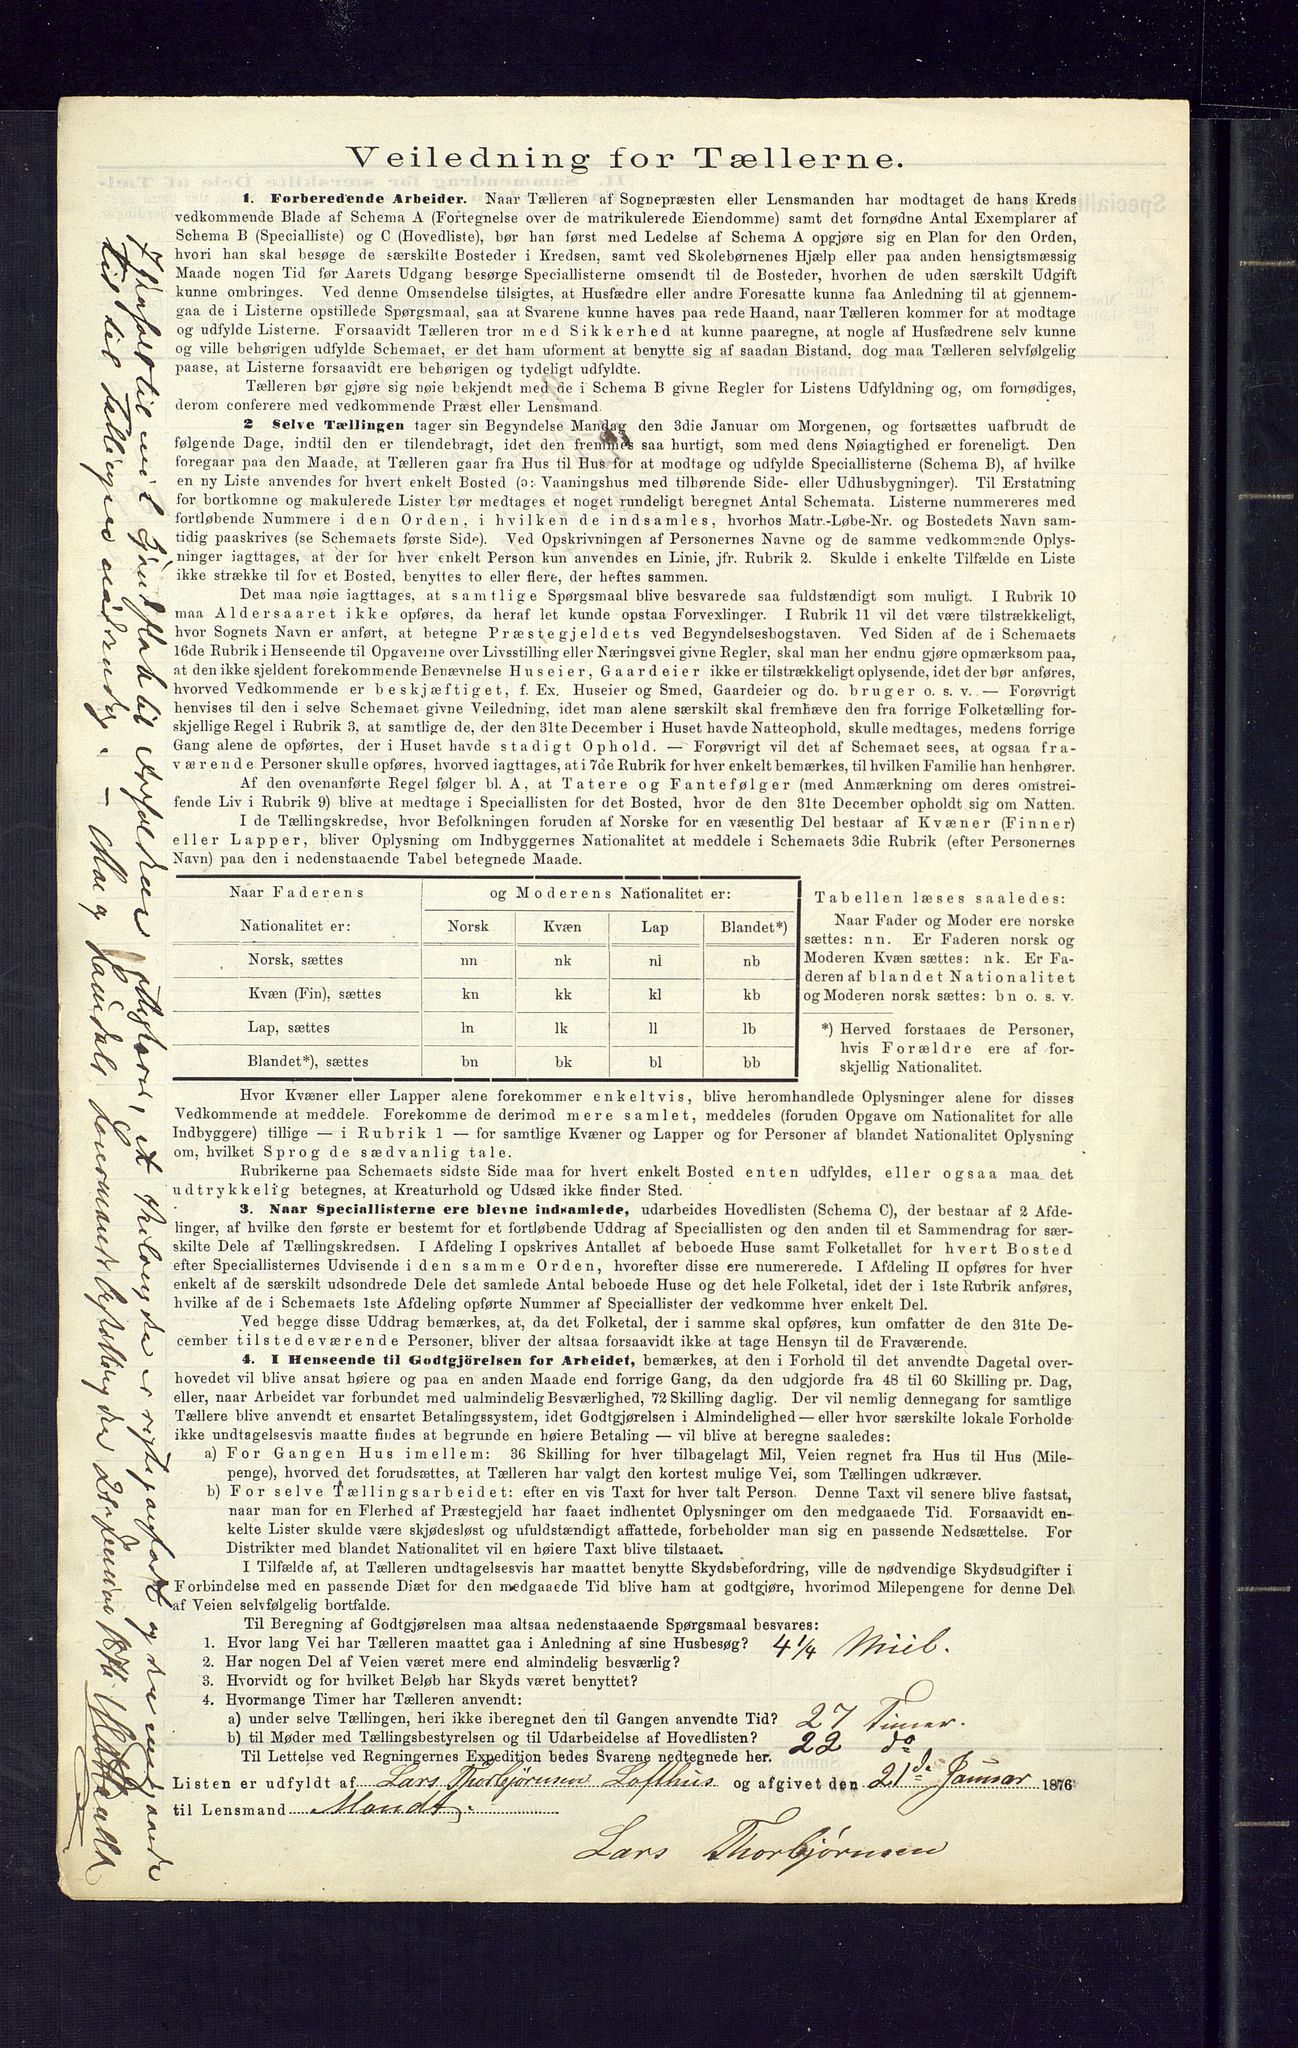 Veiledning for Tællerne.
1. Forberedende Arbeider. Naar Tælleren af Sognepræsten eller Lensmanden har modtaget de hans Kreds
vedkommende Blade af Schema A (Fortegnelse over de matrikulerede Eiendomme) samt det fornødne Antal Exemplarer af
Schema B (Specialliste) og C (Hovedliste), bør han først med Ledelse af Schema A opgjøre sig en Plan for den Orden,
hvori han skal besøge de særskilte Bosteder i Kredsen, samt ved Skolebørnenes Hjælp eller paa anden hensigtsmæssig
Maade nogen Tid før Aarets Udgang besørge Speciallisterne omsendt til de Bosteder, hvorhen de uden særskilt Udgift
kunne ombringes. Ved denne Omsendelse tilsigtes, at Husfædre eller andre Foresatte kunne faa Anledning til at gjennem-
gaa de i Listerne opstillede Spørgsmaal, saa at Svarene kunne haves paa rede Haand, naar Tælleren kommer for at modtage
og udfylde Listerne. Forsaavidt Tælleren tror med Sikkerhed at kunne paaregne, at nogle af Husfædrene selv kunne
og ville behørigen udfylde Schemaet, er det ham uforment at benytte sig af saadan Bistand, dog maa Tælleren selvfølgelig
paase, at Listerne forsaavidt ere behørigen og tydeligt udfyldte.
Tælleren bør gjøre sig nøie bekjendt med de i Schema B givne Regler for Listens Udfyldning og, om fornødiges,
derom conferere med vedkommende Præst eller Lensmand.
2 Selve Tællingen tager sin Begyndelse Mandag den 3die Januar om Morgenen, og fortsættes uafbrudt de
følgende Dage, indtil den er tilendebragt, idet den fremmes saa hurtigt, som med dens Nøiagtighed er foreneligt. Den
foregaar paa den Maade, at Tælleren gaar fra Hus til Hus for at modtage og udfylde Speciallisterne (Schema B), af hvilke
en ny Liste anvendes for hvert enkelt Bosted (ɔ: Vaaningshus med tilhørende Side- eller Udhusbygninger). Til Erstatning
for bortkomne og makulerede Lister bør medtages et noget rundeligt beregnet Antal Schemata. Listerne nummereres med
fortløbende Nummere i den Orden, i hvilken de indsamles, hvorhos Matr.-Løbe-Nr. og Bostedets Navn sam-
tidig paaskrives (se Schemaets første Side). Ved Opskrivningen af Personernes Navne og de samme vedkommende Oplys-
ninger iagttages, at der for hver enkelt Person kun anvendes en Linie, jfr. Rubrik 2. Skulde i enkelte Tilfælde en Liste
ikke strække til for et Bosted, benyttes to eller flere, der heftes sammen.
Det maa nøie iagttages, at samtlige Spørgsmaal blive besvarede saa fuldstændigt som muligt. I Rubrik 10
maa Aldersaaret ikke opføres, da heraf let kunde opstaa Forvexlinger. I Rubrik 11 vil det være tilstrækkeligt,
hvor Sognets Navn er anført, at betegne Præstegjeldets ved Begyndelsesbogstaven. Ved Siden af de i Schemaets
16de Rubrik i Henseende til Opgaverne over Livsstilling eller Næringsvei givne Regler, skal man her endnu gjøre opmærksom paa,
at den ikke sjeldent forekommende Benævnelse Huseier, Gaardeier ikke er tilstrækkeligt oplysende, idet der bør anføres,
hvorved Vedkommende er beskjæftiget, f. Ex. Huseier og Smed, Gaardeier og do. bruger o. s. v. — Forøvrigt
henvises til den i selve Schemaet givne Veiledning, idet man alene særskilt skal fremhæve den fra forrige Folketælling for-
skjellige Regel i Rubrik 3, at samtlige de, der den 31te December i Huset havde Natteophold, skulle medtages, medens forrige
Gang alene de opførtes, der i Huset havde stadigt Ophold. — Forøvrigt vil det af Schemaet sees, at ogsaa fra-
værende Personer skulle opføres, hvorved iagttages, at i 7de Rubrik for hver enkelt bemærkes, til hvilken Familie han henhører.
Af den ovenanførte Regel følger bl. A, at Tatere og Fantefølger (med Anmærkning om deres omstrei-
fende Liv i Rubrik 9) blive at medtage i Speciallisten for det Bosted, hvor de den 31te December opholdt sig om Natten.
I de Tællingskredse, hvor Befolkningen foruden af Norske for en væsentlig Del bestaar af Kvæner (Finner)
eller Lapper, bliver Oplysning om Indbyggernes Nationalitet at meddele i Schemaets 3die Rubrik (efter Personernes
Navn) paa den i nedenstaaende Tabel betegnede Maade.
Naar Faderens og Moderens Nationalitet er:
Nationalitet er: Norsk Kvæn Lap Blandet*)
Norsk, sættes nn nk nl nb
Kvæn (Fin), sættes kn kk kl kb
Lap, sættes ln lk ll lb
Blandet*), sættes bn bk bl bb
Tabellen læses saaledes:
Naar Fader og Moder ere norske
sættes: nn. Er Faderen norsk og
Moderen Kvæn sættes: nk. Er Fa-
deren af blandet Nationalitet
og Moderen norsk sættes: bn o. s. v.
*) Herved forstaaes de Personer,
hvis Forældre ere af for-
skjellig Nationalitet.
Hvor Kvæner eller Lapper alene forekommer enkeltvis, blive heromhandlede Oplysninger alene for disses
Vedkommende at meddele. Forekomme de derimod mere samlet, meddeles (foruden Opgave om Nationalitet for alle
Indbyggere) tillige — i Rubrik 1 — for samtlige Kvæner og Lapper og for Personer af blandet Nationalitet Oplysning
om, hvilket Sprog de sædvanlig tale.
Rubrikerne paa Schemaets sidste Side maa for hvert enkelt Bosted enten udfyldes, eller ogsaa maa det
udtrykkelig betegnes, at Kreaturhold og Udsæd ikke finder Sted.
3. Naar Speciallisterne ere blevne indsamlede, udarbeides Hovedlisten (Schema C), der bestaar af 2 Afde-
linger, af hvilke den første er bestemt for et fortløbende Uddrag af Speciallisten og den anden til et Sammendrag for sær-
skilte Dele af Tællingskredsen. I Afdeling I opskrives Antallet af beboede Huse samt Folketallet for hvert Bosted
efter Speciallisternes Udvisende i den samme Orden, hvorefter disse ere numererede. I Afdeling II opføres for hver
enkelt af de særskilt udsondrede Dele det samlede Antal beboede Huse og det hele Folketal, idet der i 1ste Rubrik anføres,
hvilke af de i Schemaets 1ste Afdeling opførte Nummer af Speciallister der vedkomme hver enkelt Del.
Ved begge disse Uddrag bemærkes, at, da det Folketal, der i samme skal opføres, kun omfatter de den 31te De-
cember tilstedeværende Personer, bliver der altsaa forsaavidt ikke at tage Hensyn til de Fraværende.
4. I Henseende til Godtgjörelsen for Arbeidet, bemærkes, at den i Forhold til det anvendte Dagetal over-
hovedet vil blive ansat høiere og paa en anden Maade end forrige Gang, da den udgjorde fra 48 til 60 Skilling pr. Dag,
eller, naar Arbeidet var forbundet med ualmindelig Besværlighed, 72 Skilling daglig. Der vil nemlig dennegang for samtlige
Tællere blive anvendt et ensartet Betalingssystem, idet Godtgjørelsen i Almindelighed — eller hvor særskilte lokale Forholde
ikke undtagelsesvis maatte findes at begrunde en høiere Betaling — vil blive at beregne saaledes:
a) For Gangen Hus imellem: 36 Skilling for hver tilbagelagt Mil, Veien regnet fra Hus til Hus (Mile-
penge), hvorved det forudsættes, at Tælleren har valgt den kortest mulige Vei, som Tællingen udkræver.
b) For selve Tællingsarbeidet: efter en vis Taxt for hver talt Person. Denne Taxt vil senere blive fastsat,
naar man for en Flerhed af Præstegjeld har faaet indhentet Oplysninger om den medgaaede Tid. Forsaavidt en-
kelte Lister skulde være skjødesløst og ufuldstændigt affattede, forbeholder man sig en passende Nedsættelse. For
Distrikter med blandet Nationalitet vil en høiere Taxt blive tilstaaet.
I Tilfælde af, at Tælleren undtagelsesvis har maattet benytte Skydsbefordring, ville de nødvendige Skydsudgifter i
Forbindelse med en passende Diæt for den medgaaede Tid blive ham at godtgjøre, hvorimod Milepengene for denne Del
af Veien selvfølgelig bortfalde.
Til Beregning af Godtgjørelsen maa altsaa nedenstaaende Spørgsmaal besvares:
1. Hvor lang Vei har Tælleren maattet gaa i Anledning af sine Husbesøg? 4 1/4 Miil.
2. Har nogen Del af Veien været mere end almindelig besværlig?
3. Hvorvidt og for hvilket Beløb har Skyds været benyttet?
4. Hvormange Timer har Tælleren anvendt:
a) under selve Tællingen, heri ikke iberegnet den til Gangen anvendte Tid? 27 Timer.
b) til Møder med Tællingsbestyrelsen og til Udarbeidelse af Hovedlisten? 22 do
Til Lettelse ved Regningernes Expedition bedes Svarene nedtegnede her.
Listen er udfyldt af Lars Thorbjørnsen Lofthus og afgivet den 21de Januar 1876
til Lensmand Mandt.
Lars Thorbjørnsen
I Henhold til mit Kjendskab til Forholdene attesteres, at Milængden er rigtig anført og den medgaaede
Tid til Tællingen nødvendig. — Moe og Laurdals Lensmandsbestilling den 21 Januar 1876.